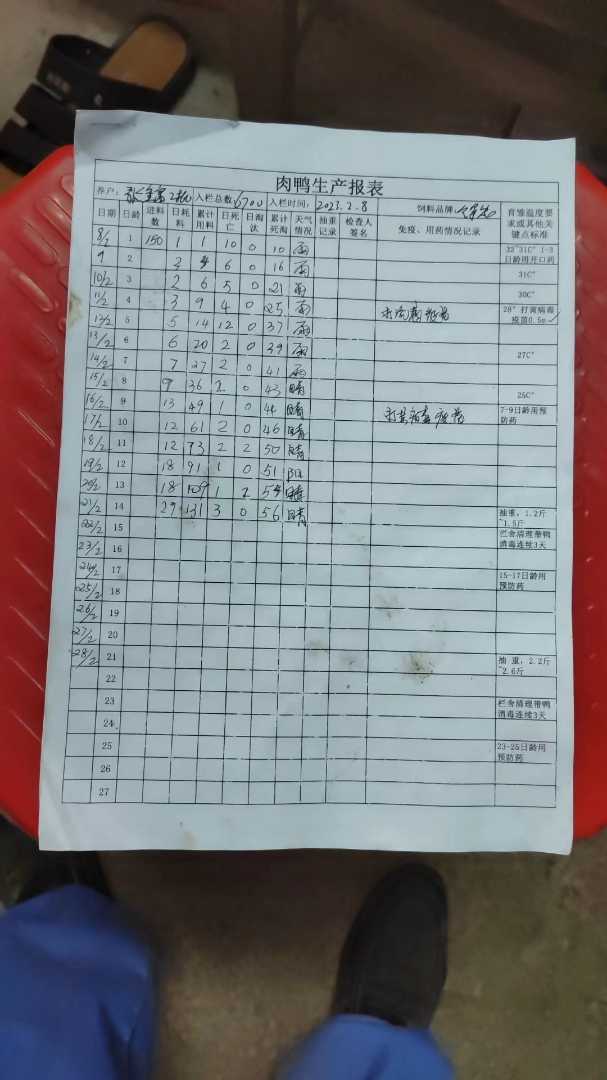 肉鸭生产报表
养户: 入栏总数: 6700 入栏时间: 2023.2.8 饲料品牌: 育雏温度要求或其他关键点标准
日期 日龄 进料数 日耗料 累计用料 日死亡 日淘汰 累计死淘 天气情况 抽重记录 检查人签名 免疫、用药情况记录
8/2 1 150 1 1 10 0 10 雨 33~31C° 1-3日龄用开口药
9 2 3 4 6 0 16 雨 31C°
10/2 3 2 6 5 0 21 雨 30C°
11/2 4 3 9 4 0 25 雨 28° 打黄病毒疫苗0.5m
12/2 5 5 14 12 0 37 雨
13/2 6 6 20 2 0 39 雨 27C°
14/2 7 7 27 2 0 41 雨
15/2 8 9 36 2 0 43 晴 25C°
16/2 9 13 49 1 0 44 晴 7-9日龄用预防药
17/2 10 12 61 2 0 46 晴
18/2 11 12 73 2 2 50 晴
19/2 12 18 91 1 0 51 阳
20/2 13 18 109 1 2 54 晴
21/2 14 29 131 3 0 56 晴 抽重：1.2斤~1.5斤
22/2 15 栏舍清理带鸭消毒连续3天
23/2 16
24/2 17 15-17日龄用预防药
25/2 18
26/2 19
27/2 20
28/2 21 抽 重：2.2斤~2.6斤
22
23 栏舍清理带鸭消毒连续3天
24
25 23-25日龄用预防药
26
27